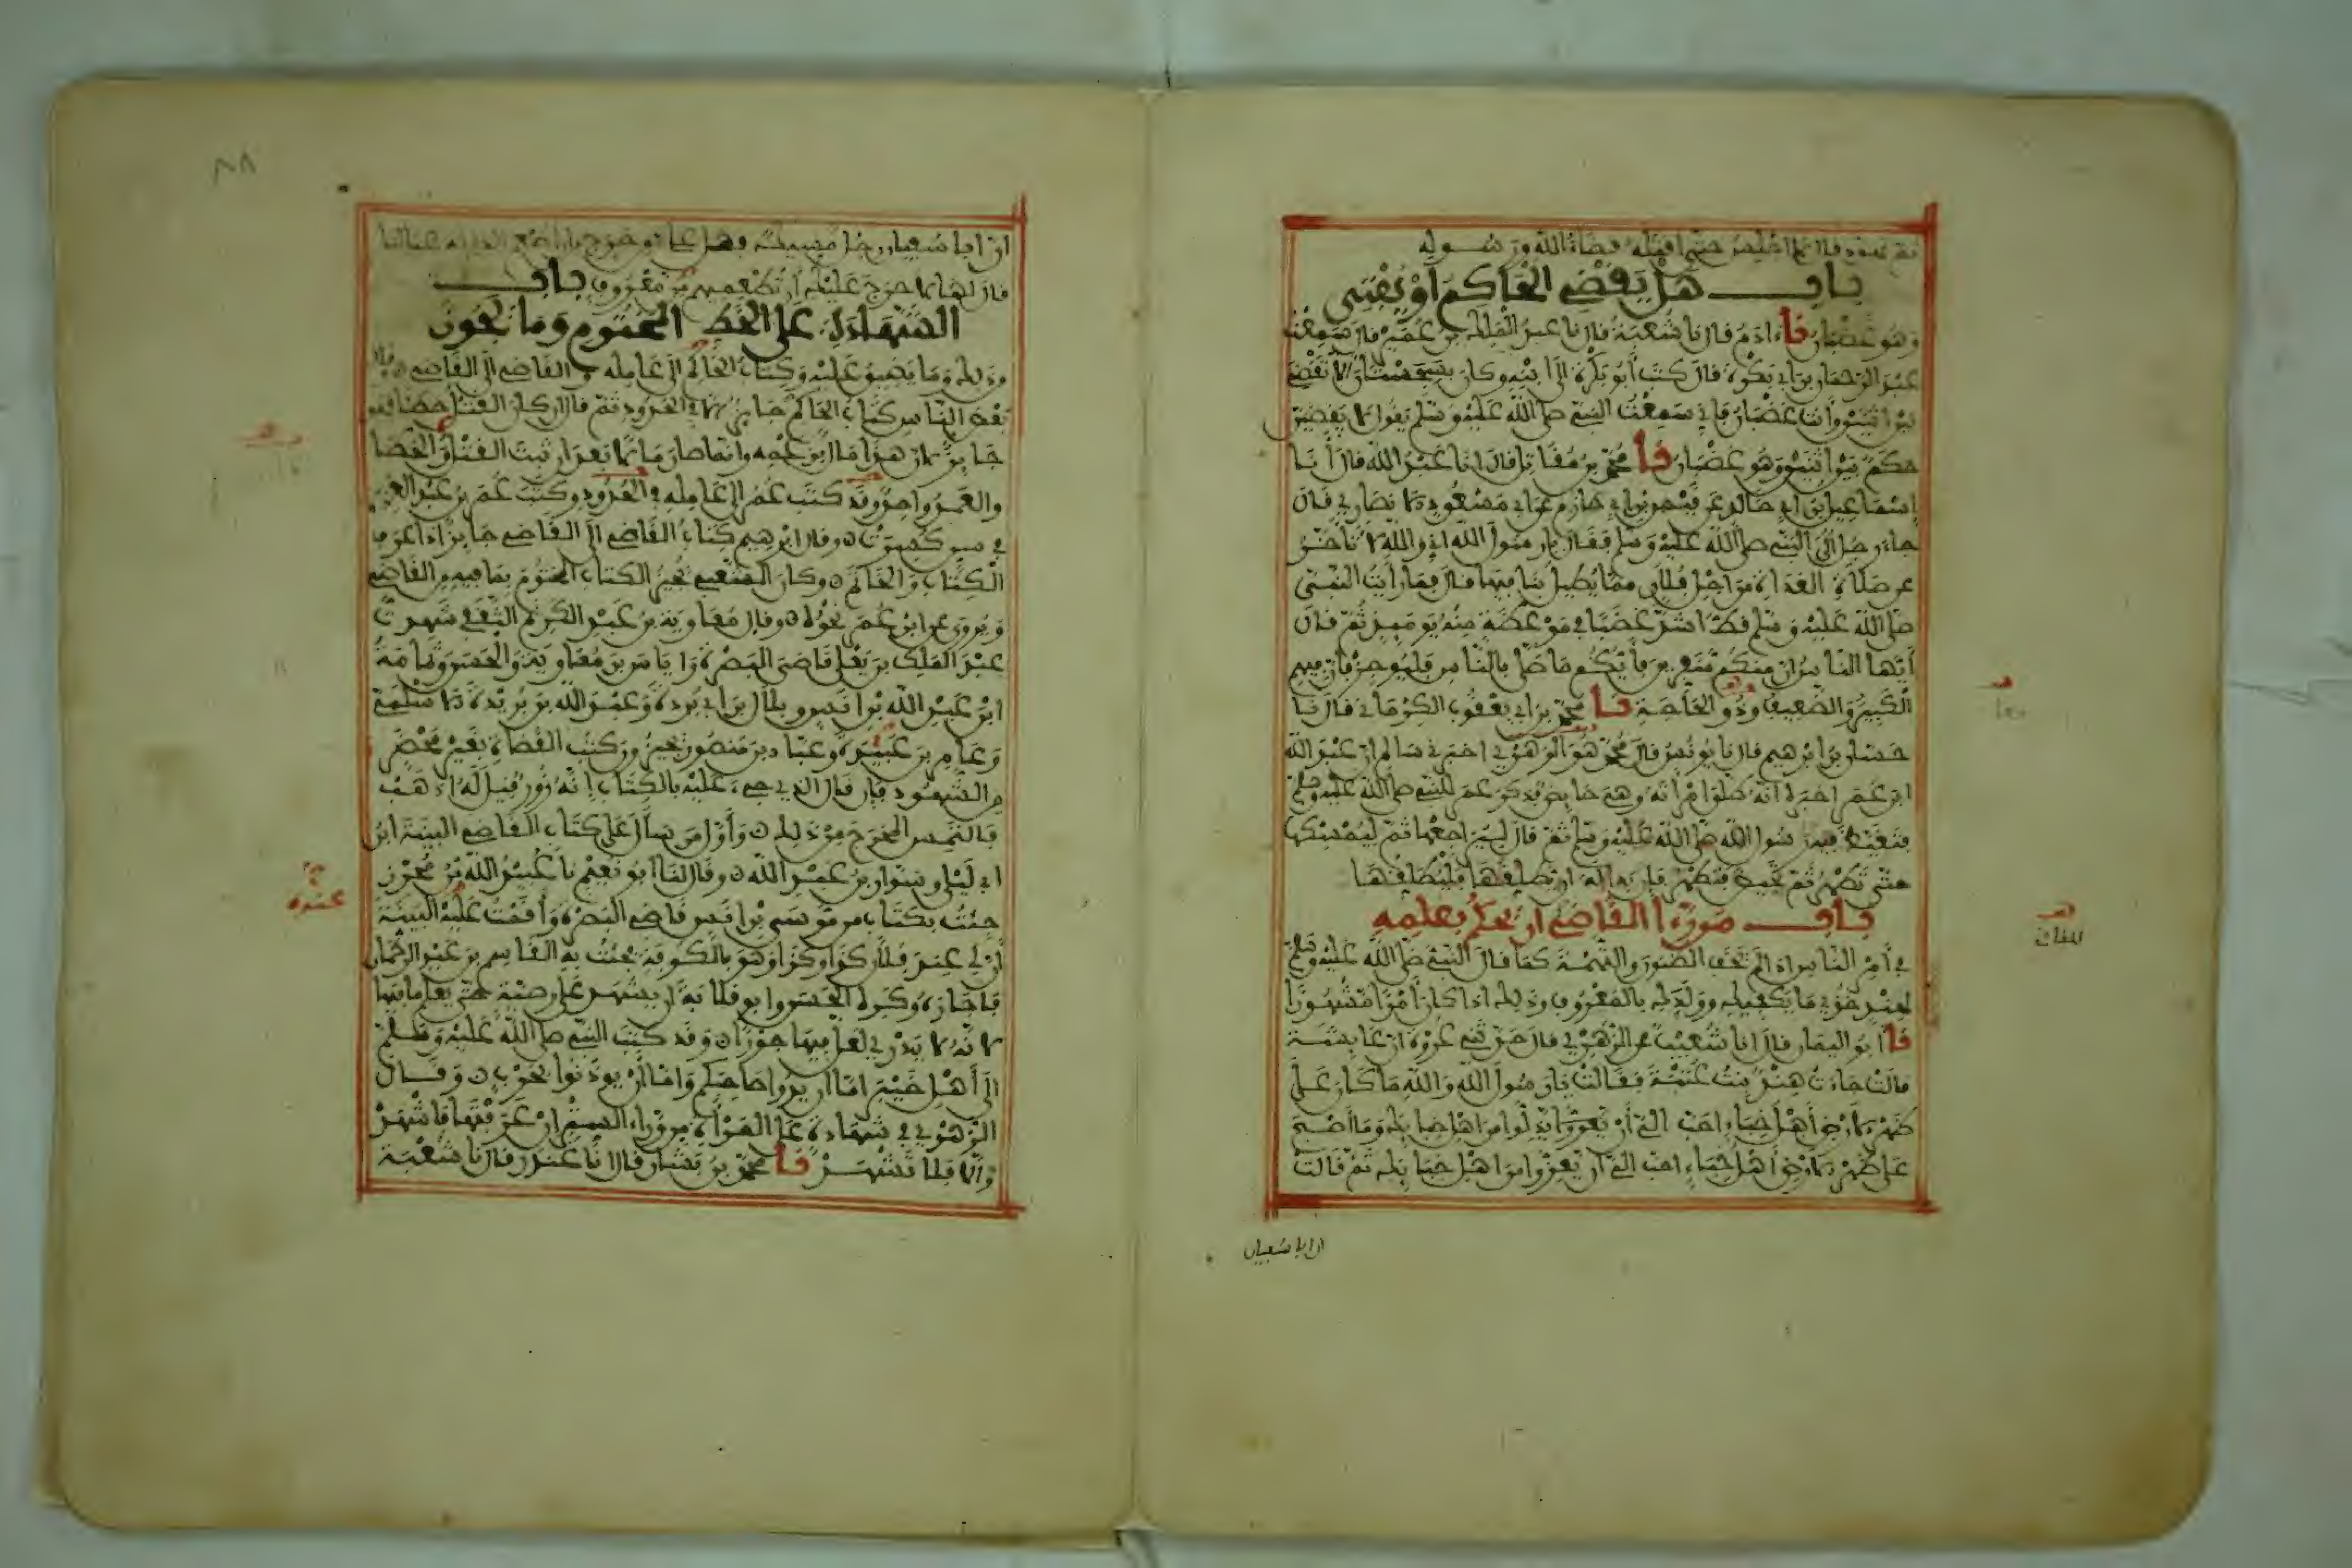 ثم تهود قال لا اجلس حتى اقتله قضاء الله ورسوله
باب هل يقضي الحاكم او يفتي
وهو غضبان نا ءادم قال نا شعبة قال نا عبد الملك بن عمير قال سمعت
عبد الرحمان بن ابي بكرة قال كتب أبو بكرة الى ابنه وكان بسجستان ألا تقضي
بين اثنين وأنت غضبان فإني سمعت النبي صلى الله عليه وسلم يقول لا يقضين
حكم بين اثنين وهو غضبان نا محمد بن مقاتل قال انا عبد الله قال أنا
إسماعيل بن ابي خالد عن قيس بن ابي حازم عن ابي مسعود الانصاري قال
جاء رجل الى النبي صلى الله عليه وسلم فقال يا رسول الله اني والله لا تأخر
عن صلاة الغداة من اجل فلان مما يطيل بنا فيها قال فما رأيت النبي
صلى الله عليه وسلم قط اشد غضبا في موعظة منه يومئذ ثم قال
أيها الناس إن منكم منفرين فأيكم ما صلى بالناس فليوجز فإن فيهم
الكبير والضعيف وذو الحاجة نا محمد بن ابي يعقوب الكرماني قال نا
حسان بن ابرهيم قال نا يونس قال محمد هو الزهري اخبرني سالم ان عبد الله
ابن عمر اخبره انه طلق امرأته وهي حايض فذكر عمر للنبي صلى الله عليه وسلم
فتغيظ فيه رسول الله صلى الله عليه وسلم ثم قال ليراجعها ثم ليمسكها
حتى تطهر ثم تحيض فتطهر فإن بدا له ان يطلقها فليطلقها
باب من رءا القاضي ان يحكم بعلمه
في أمر الناس اذا لم يخف الظنون والتهمة كما قال النبي صلى الله عليه وسلم
لهند خذي ما يكفيك وولدك بالمعروف وذلك اذا كان أمرا مشهورا
نا أبو اليمان قال انا شعيب عن الزهري قال حدثني عروة ان عايشة
قالت جاءت هند بنت عتبة فقالت يا رسول الله والله ما كان على
ظهر الارض أهل خباء احب الي أن يذلوا من اهل خبايك وما أصبح
على ظهر الارض أهل خباء احب الي ان يعزوا من اهل خبايك ثم قالت
ان ابا سفيان
ان ابا سفيان رجل مسيك فهل علي من حرج ان اطعم الذي له عيالنا
قال لها لا حرج عليك أن تطعميهم من معروف باب
الشهادة على الخط المختوم وما يجوز
من ذلك وما يضيق عليه وكتاب الحاكم الى عامله والقاضي الى القاضي وقال
بعض الناس كتاب الحاكم جايز الا في الحدود ثم قال ان كان القتل خطأ فهو
جايز لان هذا مال بزعمه وانما صار مالا بعد ان ثبت القتل والخطأ
والعمد واحد وقد كتب عمر الى عامله في الحدود وكتب عمر بن عبد العزيز
في سن كسرت وقال ابرهيم كتاب القاضي الى القاضي جايز اذا عرف
الكتاب والخاتم وكان الشعبي يجيز الكتاب المختوم بما فيه من القاضي
ويروى عن ابن عمر نحوه وقال معاوية بن عبد الكريم الثقفي شهدت
عبد الملك بن يعلى قاضي البصرة وإياس بن معاوية والحسن وثمامة
ابن عبد الله بن انس وبلال بن ابي بردة وعبد الله بن بريدة الاسلمي
وعامر بن عبيدة وعباد بن منصور يجيزون كتب القضاة بغير محضر
من الشهود فإن قال الذي جيء عليه بالكتاب إنه زور قيل له اذهب
فالتمس المخرج من ذلك وأول من سأل على كتاب القاضي البينة ابن
ابي ليلى وسوار بن عبد الله وقال لنا أبو نعيم نا عبيد الله بن محرز
جئت بكتاب من موسى بن انس قاضي البصرة وأقمت عليه البينة
أن لي عند فلان كذا وكذا وهو بالكوفة فجئت به القاسم بن عبد الرحمان
فأجازه وكره الحسن وابو قلابة ان يشهد على وصية حتى يعلم ما فيها
لانه لا يدري لعل فيها جورا وقد كتب النبي صلى الله عليه وسلم
الى أهل خيبر اما ان يدوا صاحبكم وإما أن يوذنوا بحرب وقال
الزهري في شهادة على المرأة من وراء الستر إن عرفتها فاشهد
وإلا فلا تشهد نا محمد بن بشار قال نا غندر قال نا شعبة